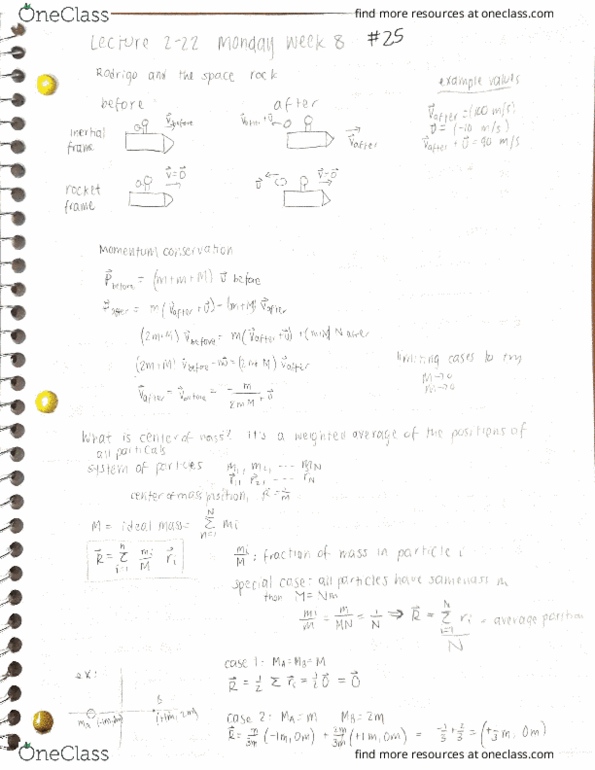 OneClass
find more resources at oneclass.com
Lecture 2-22 Monday Week 8 #25
Rodrigo and the space rock
example values
before
after
v⃗after = (100 m/s)
inertial frame
v⃗before
v⃗after
= (-10 m/s)
= 90 m/s
rocket frame
v⃗=0
v⃗=0
Momentum conservation
P⃗before = (m+m+M) v⃗ before
P⃗after = m(v⃗after + v⃗) - (m+M) v⃗after
(2m+M) v⃗before = m(v⃗after + v⃗) + (m+M)
limiting cases to try
M→0
m→0
What is center of mass? It's a weighted average of the positions of
all particals
system of particles m₁, m₂, ... mN
r⃗₁, r⃗₂, ... r⃗N
center of mass position,
M = ideal mass = Σ mi
R⃗ = Σ mi/M r⃗i
mi/M : fraction of mass in particle i
special case: all particles have same mass m
then M = Nm
mi/M = m/MN = 1/N ⇒ R⃗ = Σ ri / N = average position
ex:
case 1: MA = MB = M
R⃗ = 1/2 Σ r⃗i = 1/2 0⃗ = 0⃗
B
mA (-1m, 0m)
(+1m, 2m)
case 2: MA = m MB = 2m
R⃗ = m/3m (-1m, 0m) + 2m/3m (+1m, 0m) = -1/3 + 2/3 = (+1/3 m, 0m)
OneClass
find more resources at oneclass.com